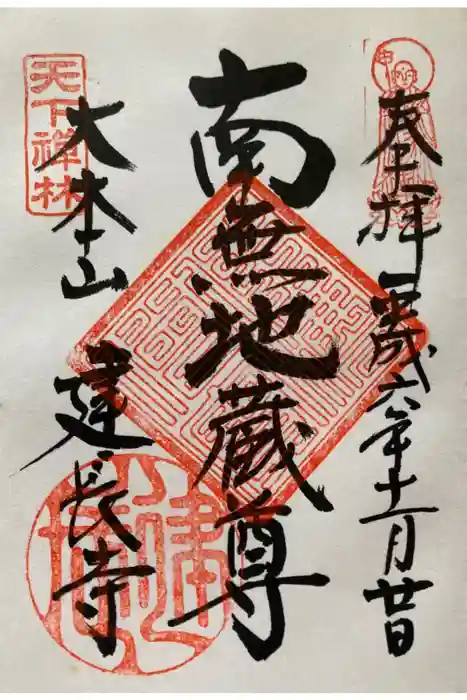 奉拝
平成六年十一月廿日
南無地蔵尊
天下禅林
大本山
建長寺